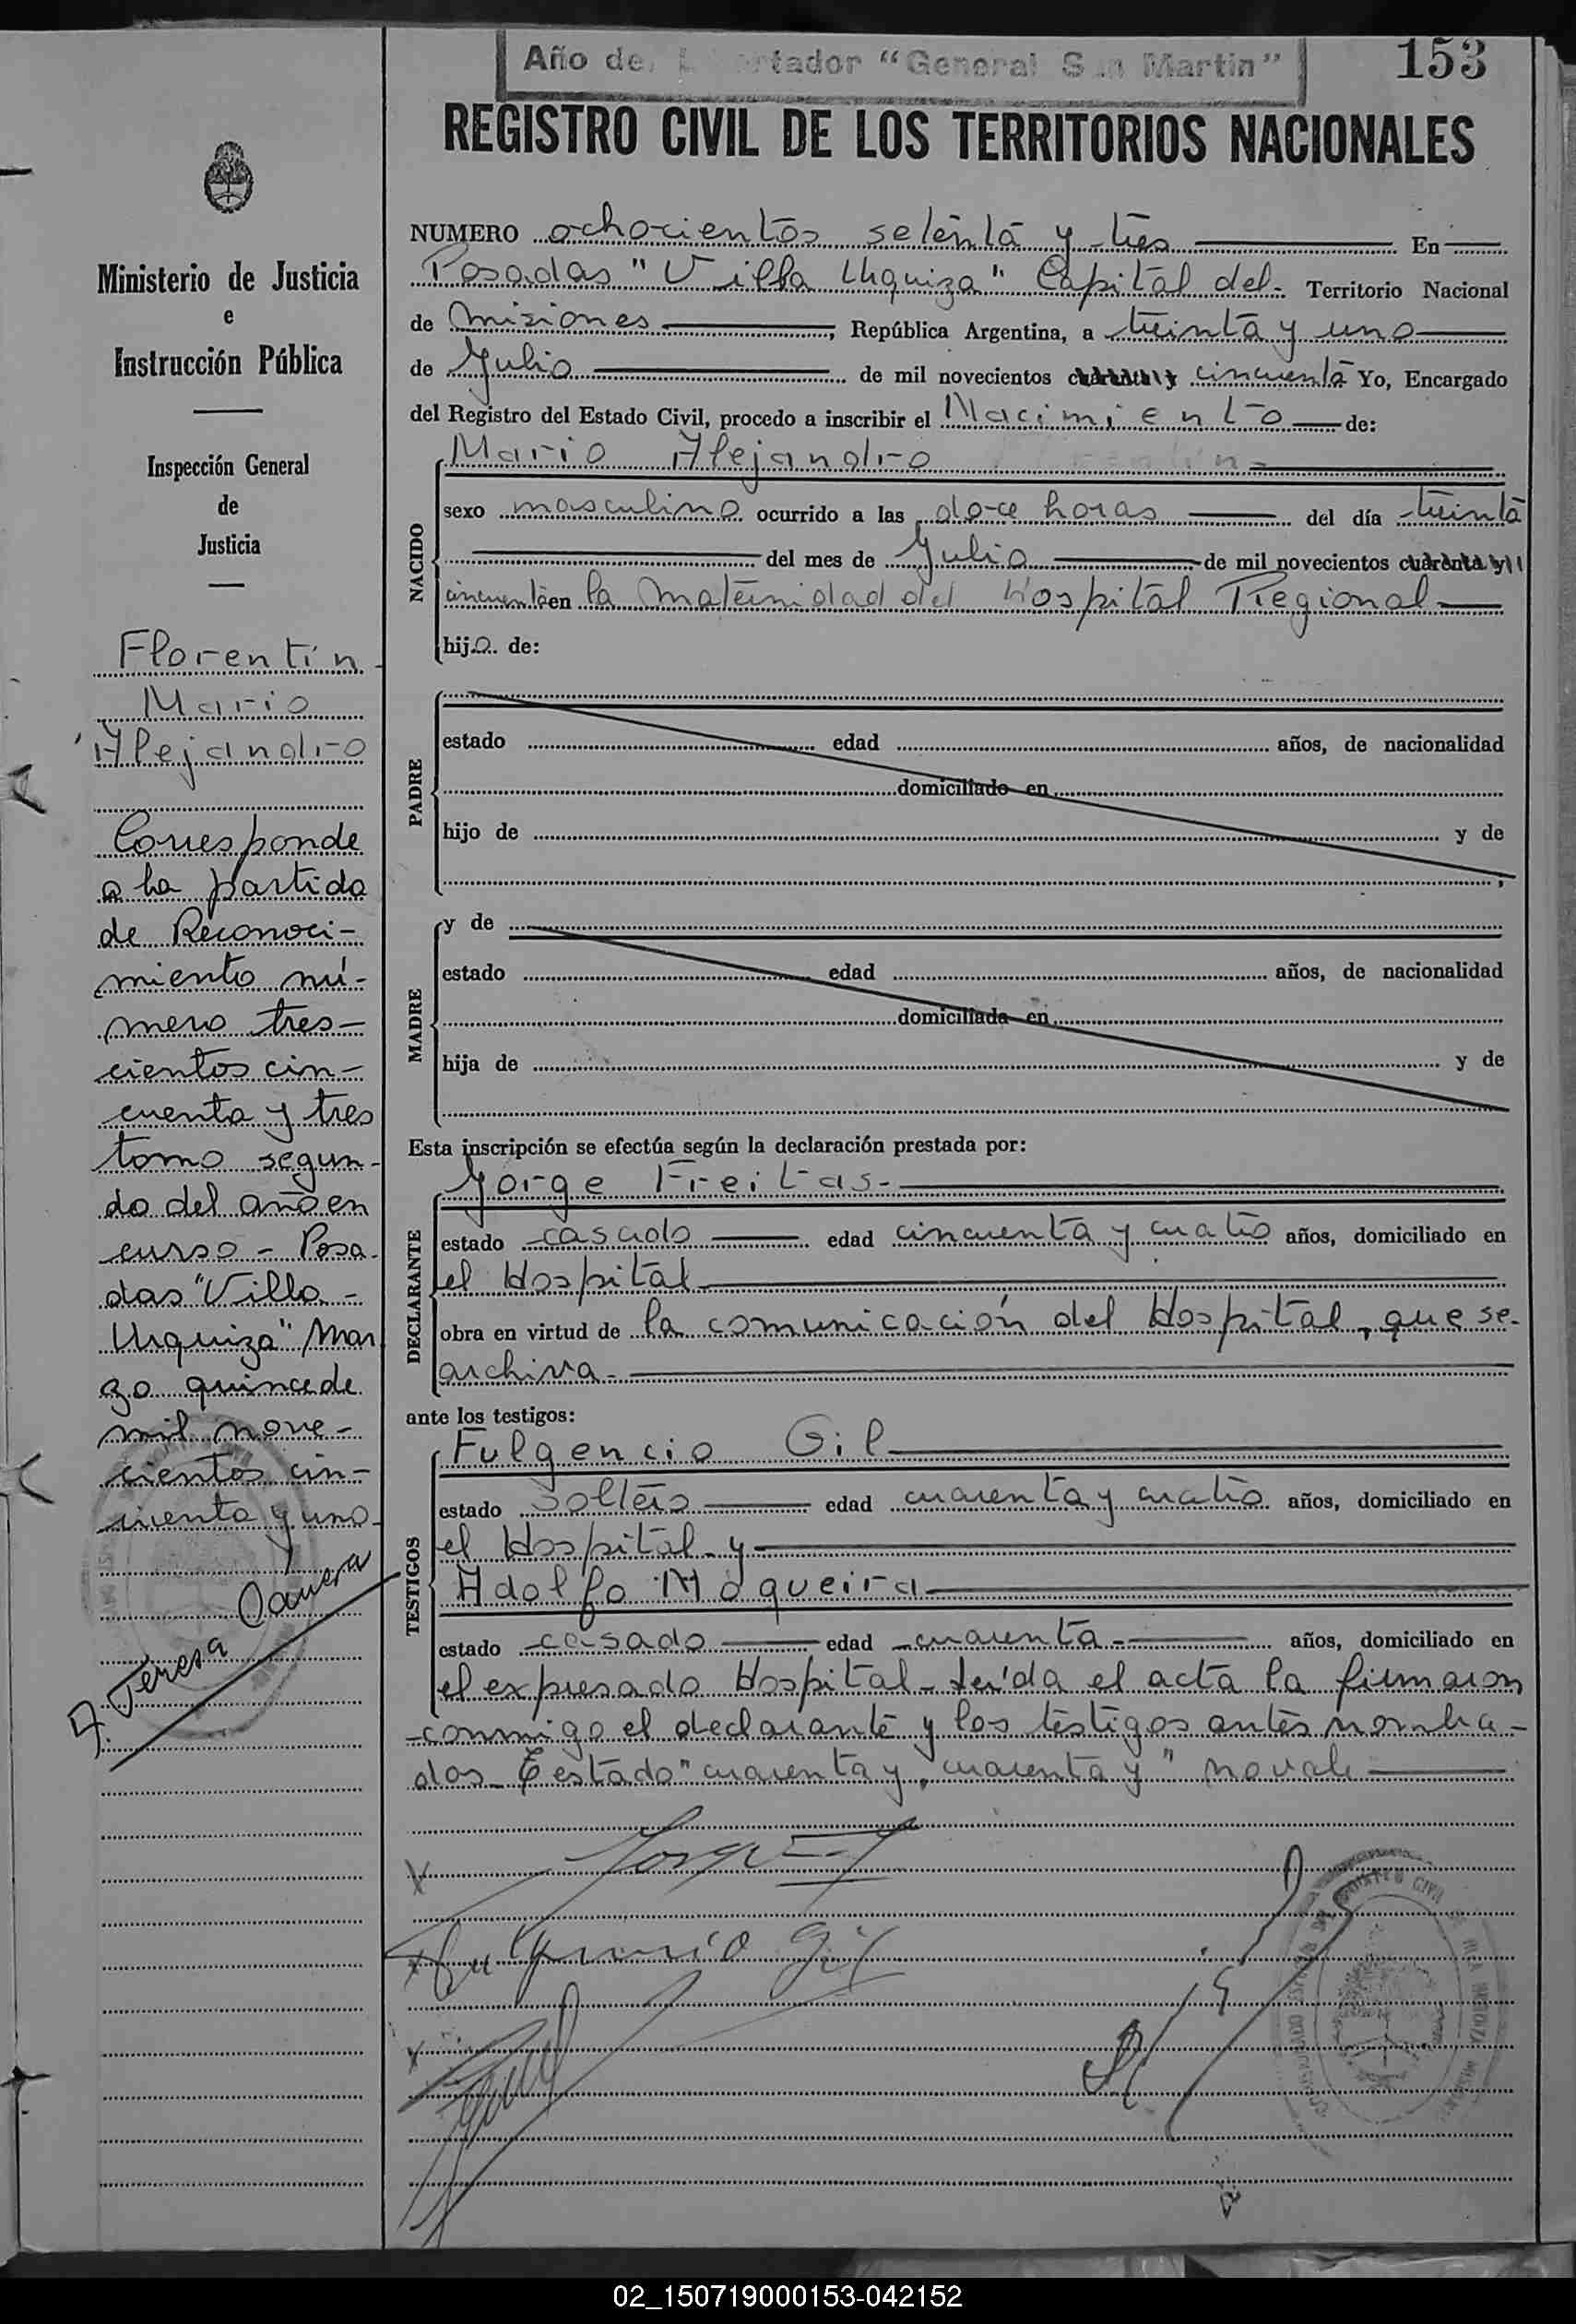 Año del Libertador "General San Martin"
153
REGISTRO CIVIL DE LOS TERRITORIOS NACIONALES
Ministerio de Justicia
e
Instrucción Pública
Inspección General
de
Justicia
Florentín
Mario
Alejandro
Corresponde
a la partida
de Reconoci-
miento nú-
mero tres-
cientos cin-
cuenta y tres
tomo segun-
do del año en
curso - Posa-
das "Villa-
Urquiza" Mar
zo quince de
mil nove-
cientos cin-
cuenta y uno-
NUMERO ochocientos setenta y tres En
Posadas "Villa Urquiza" Capital del- Territorio Nacional
de Misiones , República Argentina, a treinta y uno
de Julio de mil novecientos cuarenta y cincuenta Yo, Encargado
del Registro del Estado Civil, procedo a inscribir el Nacimiento de:
NACIDO
Mario Alejandro
sexo masculino ocurrido a las doce horas del día treinta
del mes de Julio de mil novecientos cuarenta y
cincuenta en la maternidad del Hospital Regional
hijo de:
PADRE
estado edad años, de nacionalidad
domiciliado en
hijo de y de
MADRE
y de
estado edad años, de nacionalidad
domiciliada en
hija de y de
Esta inscripción se efectúa según la declaración prestada por:
DECLARANTE
Jorge Freitas-
estado casado edad cincuenta y cuatro años, domiciliado en
el Hospital
obra en virtud de la comunicación del Hospital, que se-
archiva-
ante los testigos:
TESTIGOS
Fulgencio Gil
estado soltero edad cuarenta y cuatro años, domiciliado en
el Hospital y
Adolfo Noqueira
estado casado edad cuarenta- años, domiciliado en
el expresado Hospital- Leída el acta la firmaron
conmigo el declarante y los testigos antes nombra-
dos- Testado "cuarenta y, cuarenta y" no vale
Fulgencio Gil
02_150719000153-042152